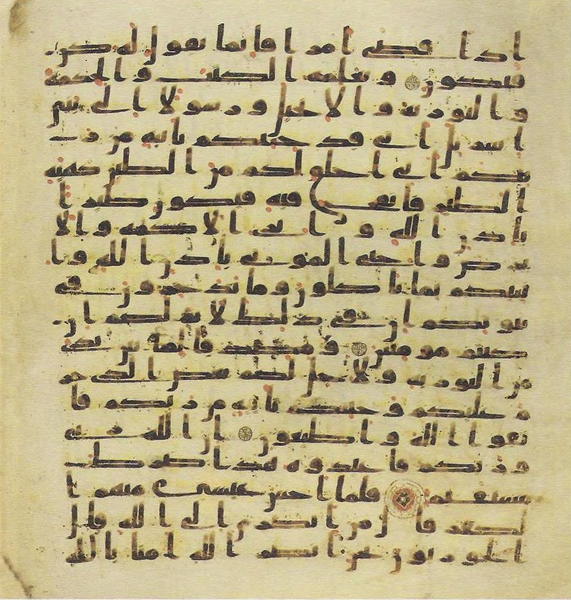 اذا قضى امرا فانما يقول له كن
فيكون ويعلمه الكتب والحكمة
والتورية والانجيل ورسولا الى بني
اسريل اني قد جئتكم باية من ر
بكم اني اخلق لكم من الطين كهيئة
الطير فانفخ فيه فيكون طيرا
باذن الله وابرئ الاكمه والا
برص واحي الموتى باذن الله وا
نبئكم بما تاكلون وما تدخرون في
بيوتكم ان في ذلك لاية لكم ان
كنتم مومنين ومصدقا لما بين يدي
من التورية ولاحل لكم بعض الذي حر
م عليكم وجئتكم باية من ربكم فا
تقوا الله واطيعون ان الله ربي
وربكم فاعبدوه هذا صرط
مستقيم فلما احس عيسى منهم ا
لكفر قال من انصاري الى الله قال
الحواريون نحن انصار الله امنا بالله